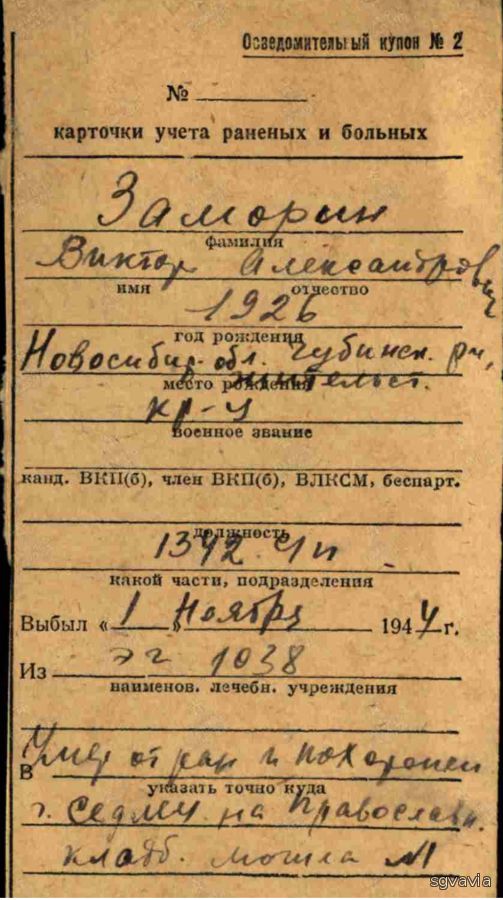 Осведомительный купон № 2
№
карточки учета раненых и больных
Заморин
фамилия
Виктор Александрович
имя отчество
1926
год рождения
Новосибир. обл. Чубинск. рн,
место рождения жительст.
кр-ц
военное звание
канд. ВКП(б), член ВКП(б), ВЛКСМ, беспарт.
должность
1342
какой части, подразделения
Выбыл «1» Ноября 1944 г.
Из эг 1038
наименов. лечебн. учреждения
В Умер от ран и похоронен
указать точно куда
г. Седлец на Православн.
кладб. могила
sgvavia